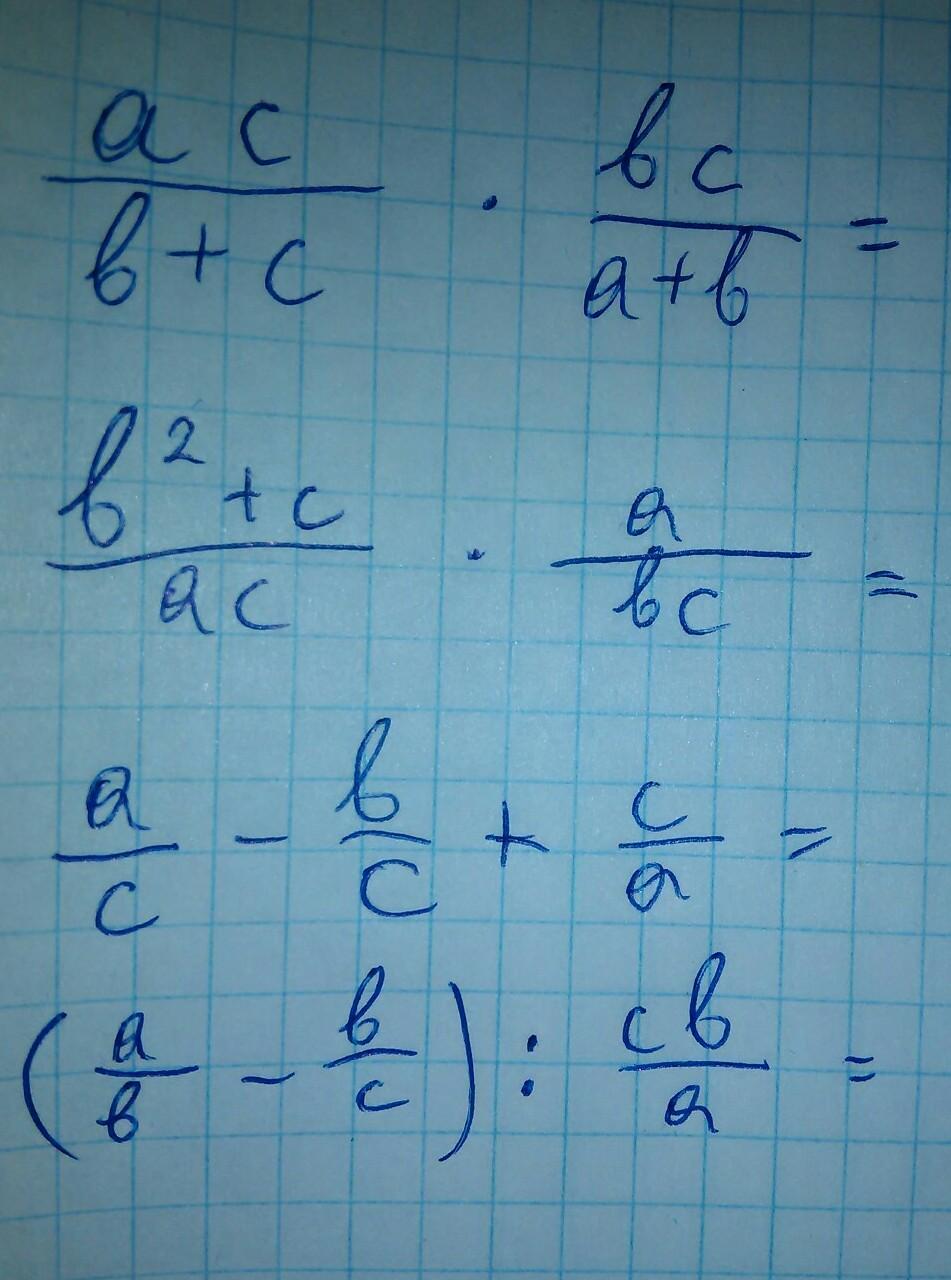 ac/(b+c) · bc/(a+b) =
(b²+c)/(ac) · a/(bc) =
a/c - b/c + c/a =
(a/b - b/c) : cb/a =